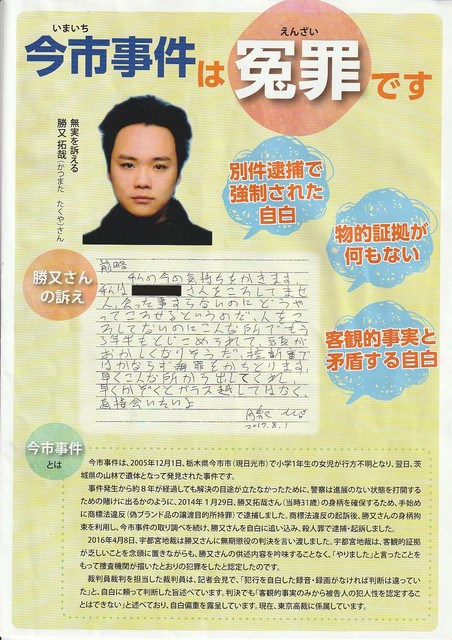 いまいち えんざい
今市事件は冤罪です
無実を訴える
勝又 拓哉(かつまた たくや)さん
別件逮捕で
強制された
自白
物的証拠が
何もない
客観的事実と
矛盾する自白
勝又さん
の訴え
前略
私の今の気持ちをかきます。
私は さんをころしてませ
ん、会った事すらないのにどうや
ってころせるというのだ、人をこ
ろしてないのにこんな所でもう
3年半もとじこめられて、頭が
おかしくなりそうだ。控訴審で
はかならず無罪をかちとります。
早くこんな所から出してくれ!
早くかぞくとガラス越しではなく、
直接会いたいよ
2017.8.1
今市事件
とは
今市事件は、2005年12月1日、栃木県今市市(現日光市)で小学1年生の女児が行方不明となり、翌日、茨
城県の山林で遺体となって発見された事件です。
事件発生から約8年が経過しても解決の目途が立たなかったために、警察は進展のない状態を打開する
ための賭けに出るかのように、2014年1月29日、勝又拓哉さん(当時31歳)の身柄を確保するため、手始め
に商標法違反(偽ブランド品の譲渡目的所持罪)で逮捕しました。商標法違反の起訴後、勝又さんの身柄拘
束を利用し、今市事件の取り調べを続け、勝又さんを自白に追い込み、殺人罪で逮捕・起訴しました。
2016年4月8日、宇都宮地裁は勝又さんに無期懲役の判決を言い渡しました。宇都宮地裁は、客観的証拠
が乏しいことを念頭に置きながらも、勝又さんの供述内容を吟味することなく、「やりました」と言ったことを
もって捜査機関が描いたとおりの犯罪をしたと認定したのです。
裁判員裁判を担当した裁判員は、記者会見で、「犯行を自白した録音・録画がなければ判断は違ってい
た」と、自白に頼って判断した旨述べています。判決でも「客観的事実のみから被告人の犯人性を認定する
ことはできない」と述べており、自白偏重を露呈しています。現在、東京高裁に係属しています。